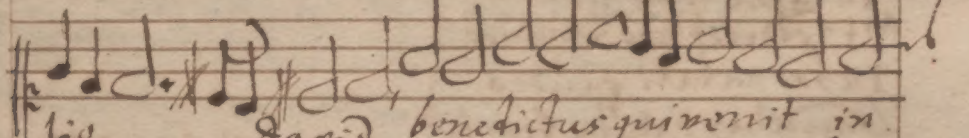 lio David benedictus qui venit in